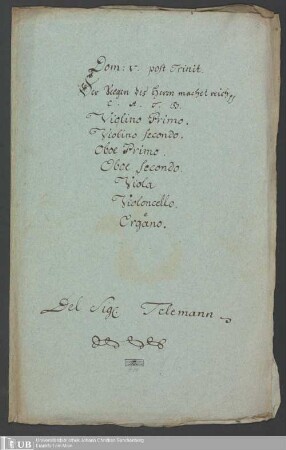 Dom: V. post Trinit.
Der Seegen des Herrn machet reich
C. A. T. B.
Violino Primo.
Violino Secondo.
Oboe Primo.
Oboe Secondo.
Viola
Violoncello.
e
Organo.
Del Sigr Telemann
UB
Universitätsbibliothek Johann Christian Senckenberg
Frankfurt am Main